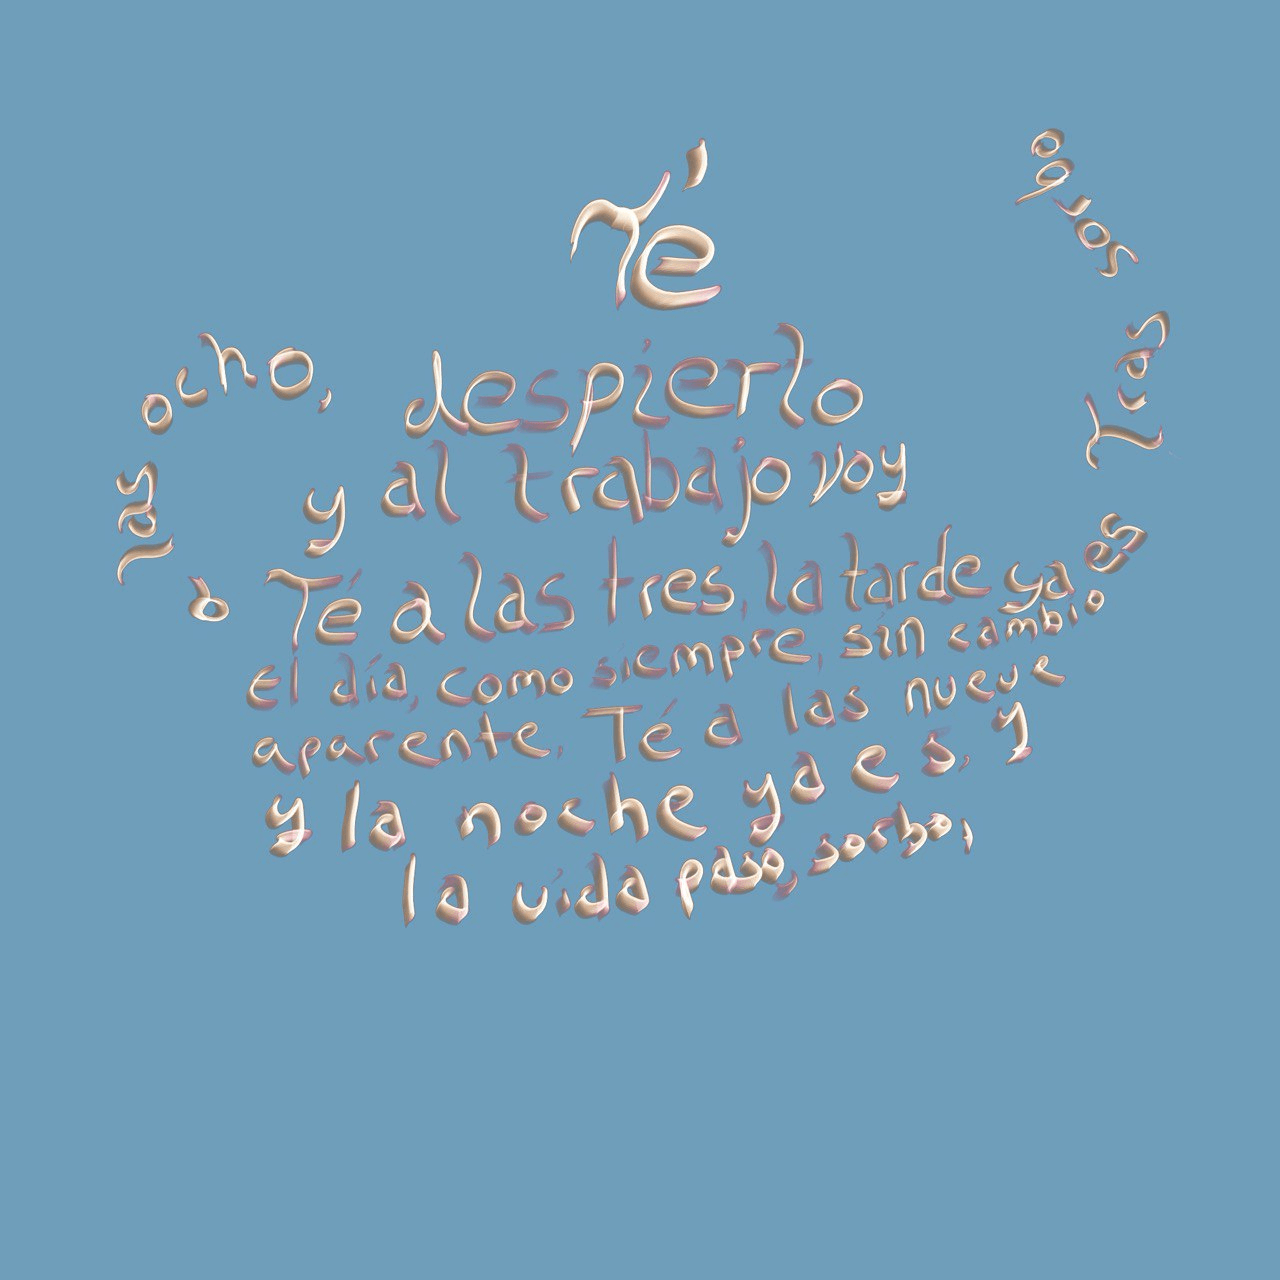 Té
a las ocho,
despierto
y al trabajo voy
Té a las tres, la tarde ya es
el día, como siempre, sin cambio
aparente. Té a las nueve
y la noche ya es, y
la vida paso, sorbo,
Tras
sorbo